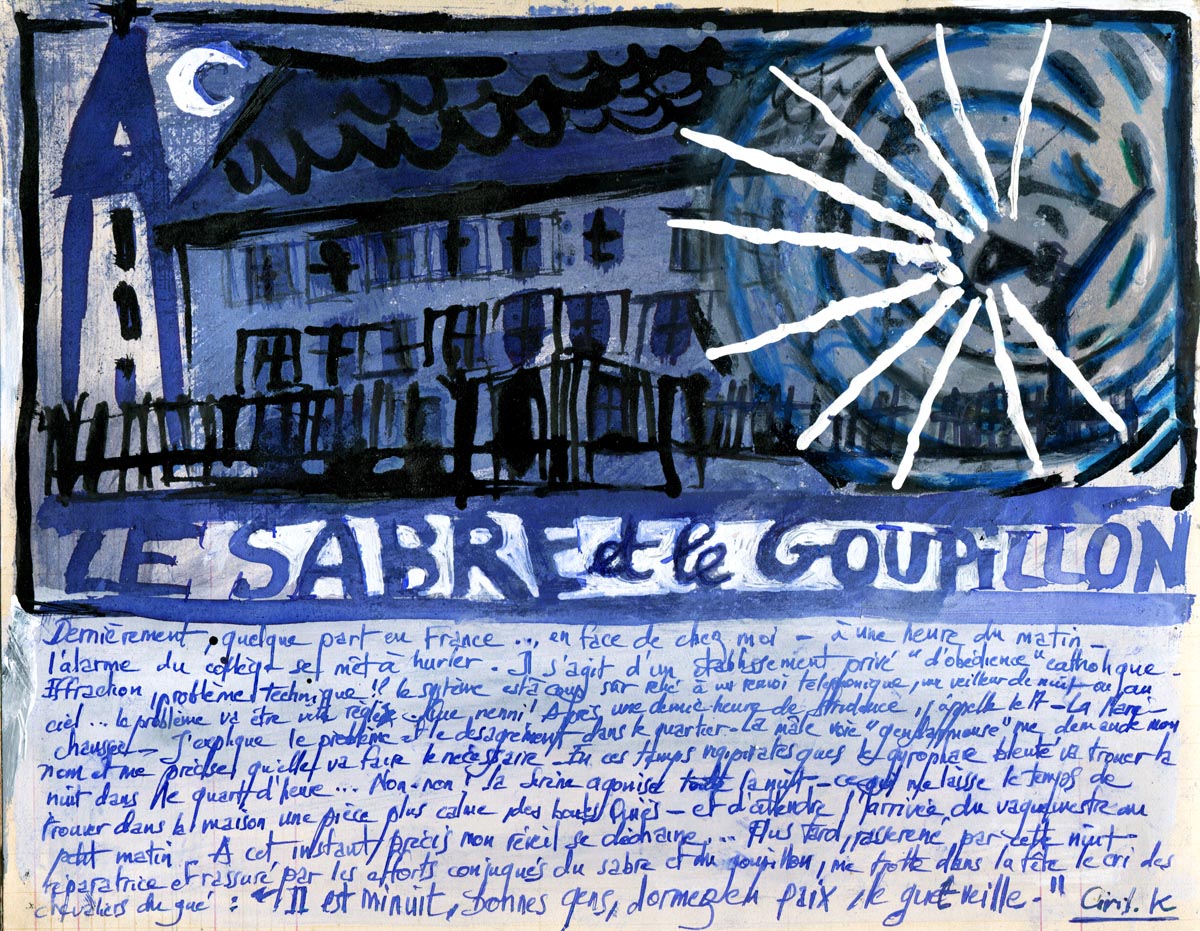 LE SABRE et le GOUPILLON
Dernièrement, quelque part en France... en face de chez moi - à une heure du matin
l'alarme du collège se met à hurler. Il s'agit d'un établissement privé "d'obédience" catholique -
Effraction, problème technique !? le système est à coup sûr relié à un renvoi téléphonique, un veilleur de nuit ou au
ciel... le problème va être vite réglé. Que nenni ! Après une demie heure de stridence, j'appelle le 17 - La Maré-
chaussée - J'explique le problème et le désagrément dans le quartier - La mâle voix "gendarmeuse" me demande mon
nom et me précise qu'elle va faire le nécessaire. En ces temps vigipiratesques le gyrophare bleuté va trouer la
nuit dans le quart d'heure... Non-non ! la sirène agonise toute la nuit - ce qui me laisse le temps de
trouver dans la maison une pièce plus calme, des boules Quiès - et d'attendre l'arrivée du vaguemestre au
petit matin - A cet instant précis mon réveil se déchaine... Plus tard, rasséréné par cette nuit
réparatrice et rassuré par les efforts conjugués du sabre et du goupillon, me trotte dans la tête le cri des
chevaliers du gué : "Il est minuit, bonnes gens, dormez en paix, le guet veille."